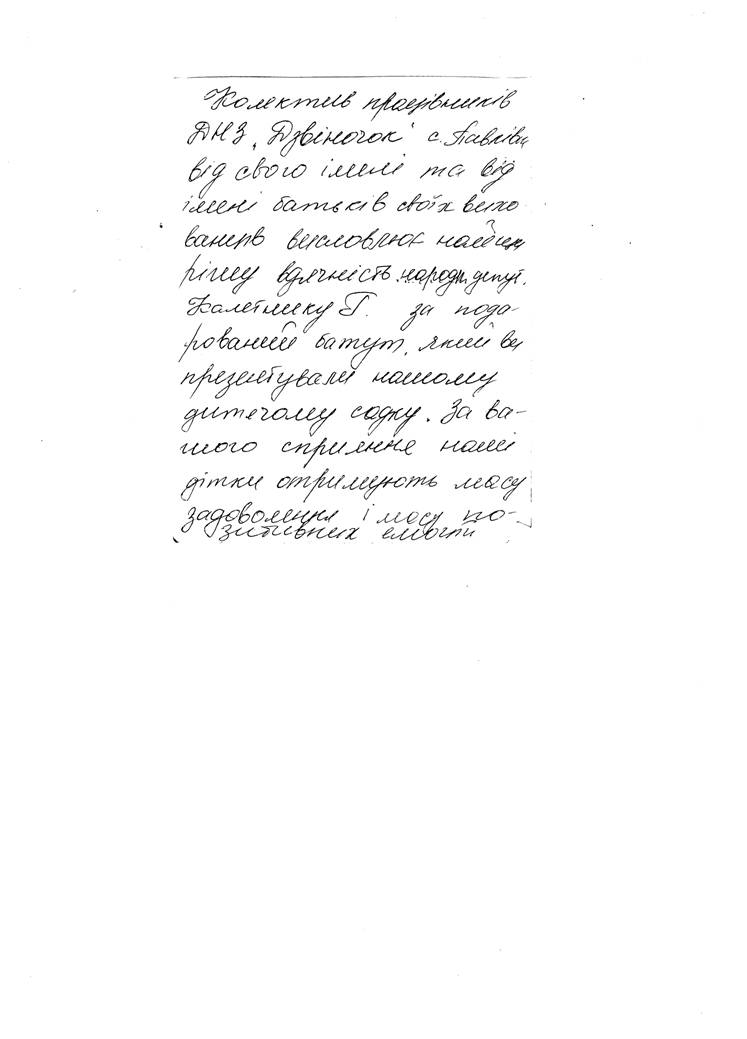 Колектив працівників
ДНЗ „Дзвіночок" с. Павлівка
від свого імені та від
імені батьків своїх вихо
ванців висловлює найщи
рішу вдячність народн. депут.
Калетнику Г. за пода-
рований батут, який ви
презентували нашому
дитячому садку. За ва-
шого сприяння наші
дітки отримують масу
задоволення і масу по-
зитивних емоцій